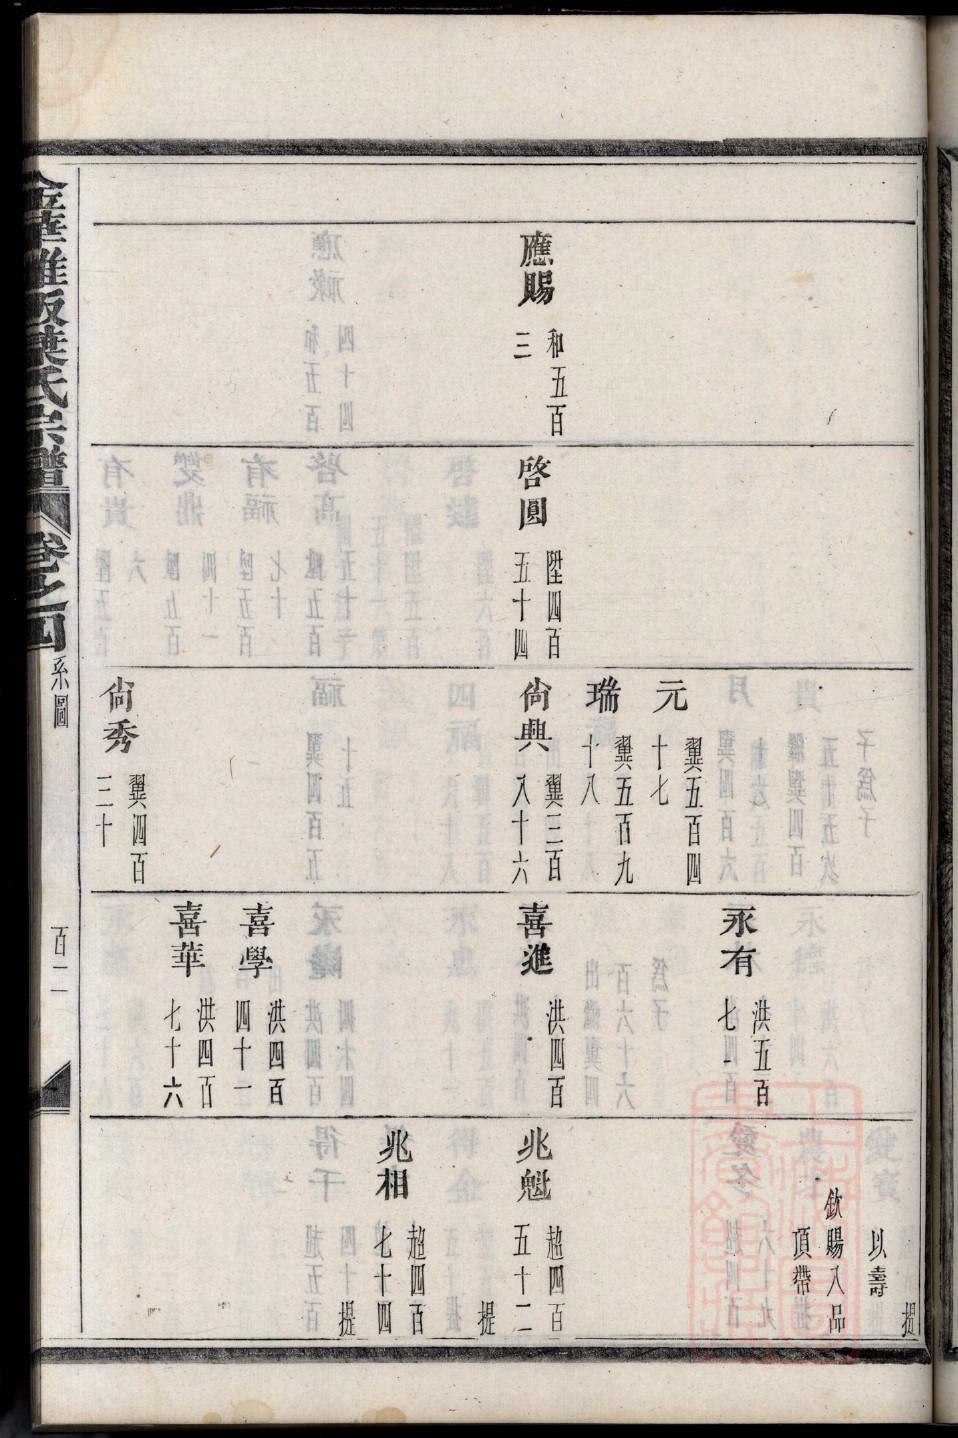 應賜
和五百
三
啓圓
陞四百
五十四
元
翼五百四
十七
瑞
翼五百九
十八
尙興
翼三百
八十六
尙秀
翼四百
三十
永有
洪五百
七
喜進
洪四百
喜學
洪四百
四十二
喜華
洪四百
七十六
提
以壽
欽賜八品
頂帶
兆魁
超四百
五十二
提
兆相
超四百
七十四
提
葉氏宗譜
卷之四
系圖
百二